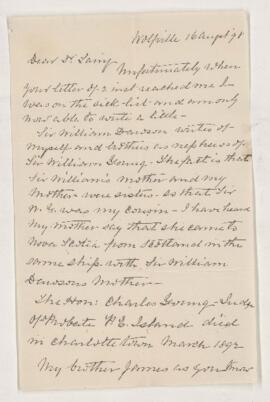 Wolfville 16 Augst 98
Dear Dr Laing
Unfortunately when
your letter of 2 inst reached me I
was on the sick list and am only
now able to write a little -
Sir William Dawson writes of
myself and brothers as nephews of
Sir William Young. The fact is that
Sir William's mother and my
Mother were sisters - so that Sir
W. Y. was my Cousin - I have heard
my Mother say that she came to
Nova Scotia from Scotland in the
same ship with Sir William
Dawsons Mother -
The Hon: Charles Young - Judge
of Probate P. E. Island died
in Charlottetown March 1892
My brother James as you know